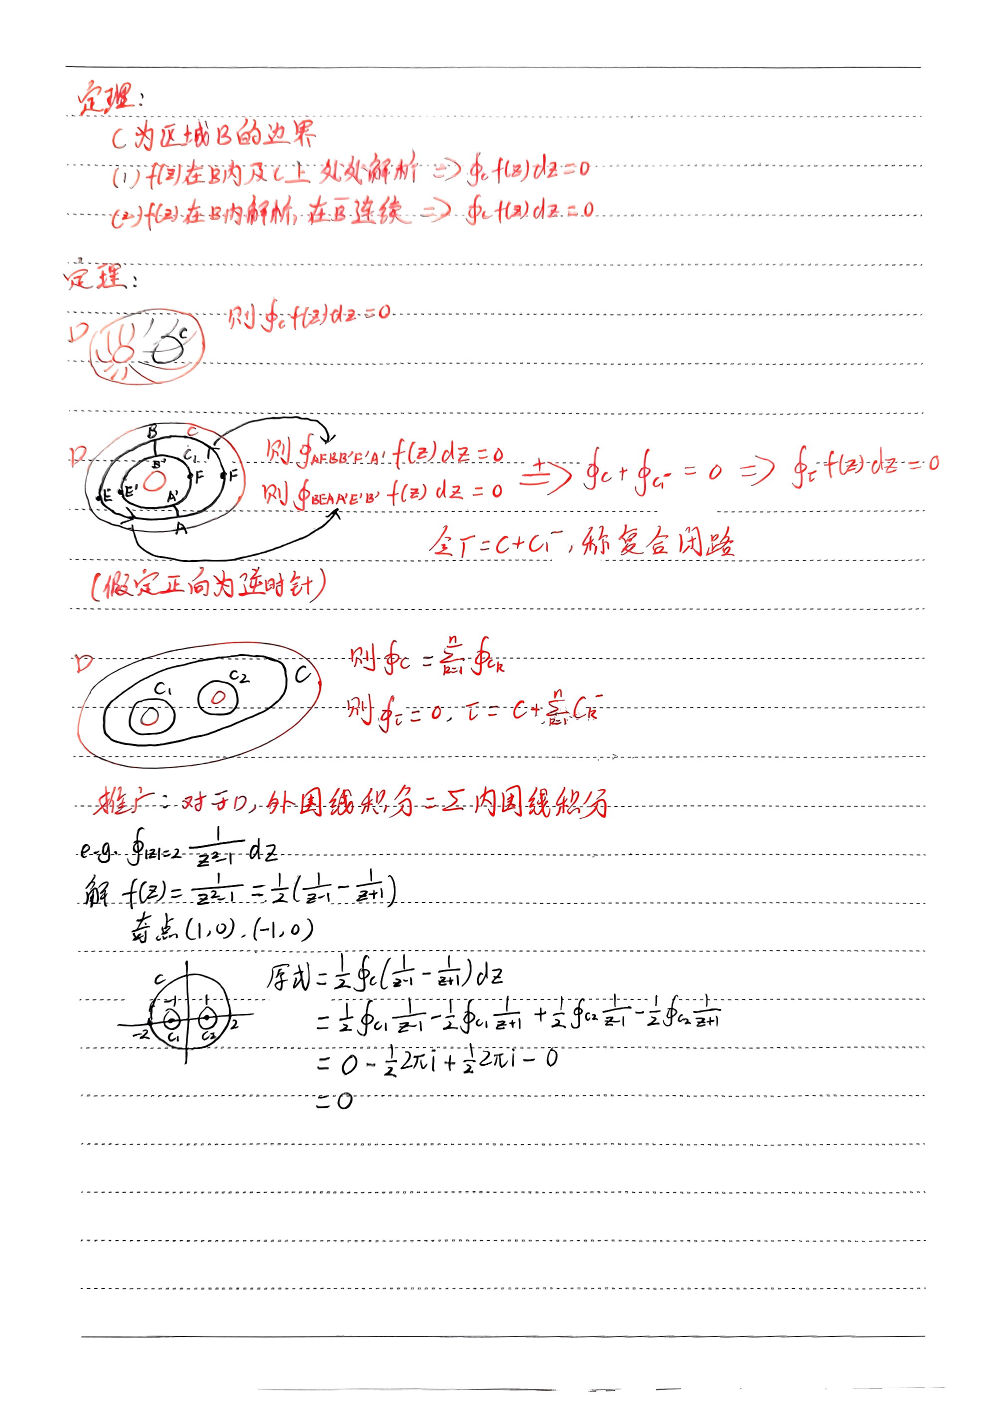 定理:
C为区域B的边界
(1) f(z)在B内及C上处处解析 => ∮c f(z)dz=0
(2) f(z)在B内解析,在B̅连续 => ∮c f(z)dz=0
定理:
D C 则∮c f(z)dz=0
D B C C₁ B' F F E E' A' A
则∮AEBB'E'A' f(z)dz=0
则∮BEAA'E'B' f(z)dz=0
+ => ∮c+∮c₁⁻=0 => ∮τ f(z)dz=0
令Γ=C+C₁⁻,称复合闭路
(假定正向为逆时针)
D C₁ C2 C
则∮c=∑ⁿₖ₌₁∮cₖ
则∮τ=0, τ=C+∑ⁿₖ₌₁Cₖ⁻
推广:对于D,外围线积分=Σ内围线积分
e.g. ∮|z|=2 1/(z²-1) dz
解 f(z)=1/(z²-1)=1/2(1/(z-1)-1/(z+1))
奇点(1,0).(-1,0)
C -1 1 -2 2 C₁ C2
原式=1/2∮c(1/(z-1)-1/(z+1))dz
=1/2∮c₁ 1/(z-1)-1/2∮c₁ 1/(z+1)+1/2∮c2 1/(z-1)-1/2∮c2 1/(z+1)
=0-1/2 2πi+1/2 2πi-0
=0